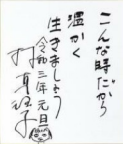 こんな時だから
温かく
生きましょう
令和三年元旦